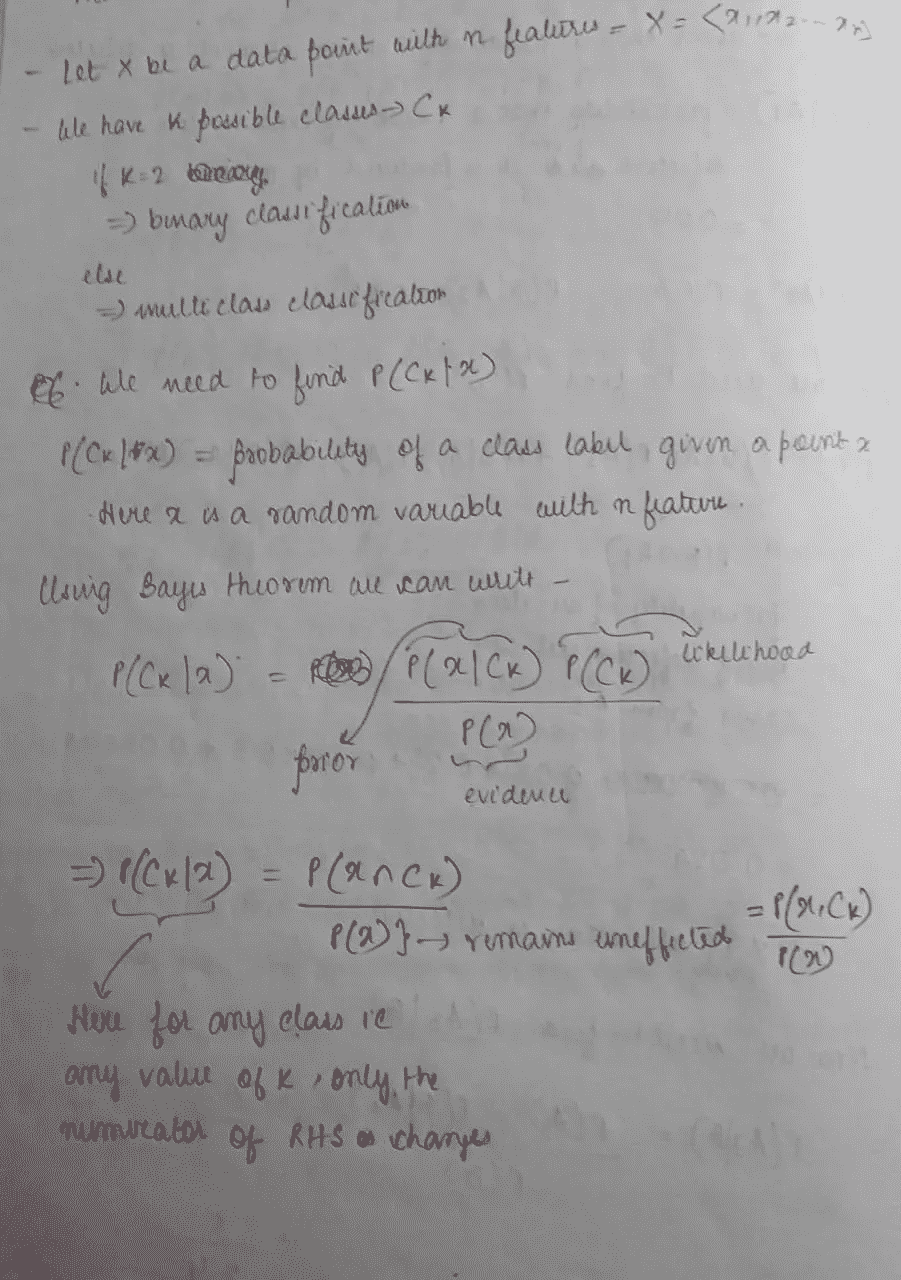 - Let X be a data point with n features = X = <x1, x2 ... xn>
- We have K possible classes → CK
if K=2
⇒ binary classification
else
⇒ multi class classification
We need to find P(CK|x)
P(CK|x) = probability of a class label, given a point x
Here x is a random variable with n feature.
Using Bayes theorem we can write -
P(CK|x) = P(x|CK) P(CK) likelihood
P(x)
prior
evidence
⇒ P(CK|x) = P(x∩CK)
P(x)} → remains uneffected = P(x,CK)
P(x)
Here for any class ie
any value of K, only the
numerator of RHS changes